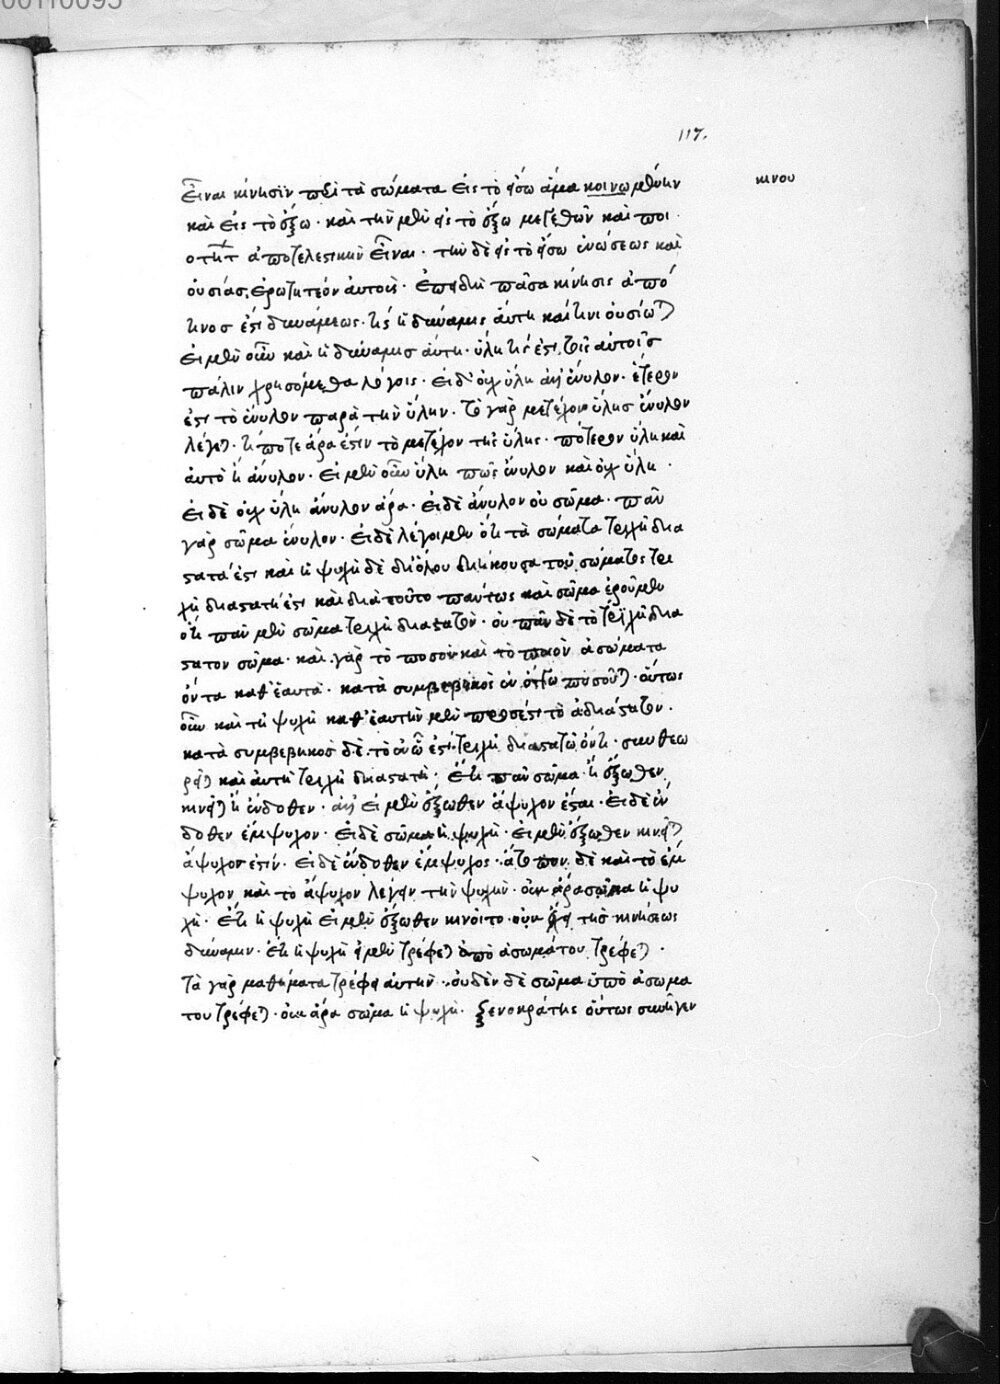 00110095
117.
εἶναι κίνησιν περὶ τὰ σώματα εἰς τὸ ἔσω ἅμα κοινωμένην
κινου
καὶ εἰς τὸ ἔξω· καὶ τὴν μὲν εἰς τὸ ἔξω μεγεθῶν καὶ ποι
οτήτ ἀποτελεστικὴν εἶναι· τὴν δὲ εἰς τὸ ἔσω ἑνώσεως καὶ
οὐσίας, ἐρωτητέον αὐτοὺς· ἐπειδὴ πᾶσα κίνησις ἀπό
τινος ἐστι δυνάμεως· τίς ἡ δύναμις αὕτη καὶ τίνι οὐσίωται
εἰ μὲν οὖν καὶ ἡ δύναμις αὕτη· ὕλη τίς ἐστι, τοῖς αὐτοῖς
πάλιν χρησόμεθα λόγοις· εἰ δ' οὐχ ὕλη ἀλλ' ἔνυλον· ἕτερον
ἐστι τὸ ἔνυλον παρὰ τὴν ὕλην· τὸ γὰρ μετέχον ὕλης ἔνυλον
λέγεται· τί ποτε ἄρα ἐστὶν τὸ μετέχον τῆς ὕλης· πότερον ὕλη καὶ
αὐτὸ ἢ ἄνυλον· εἰ μὲν οὖν ὕλη πῶς ἔνυλον καὶ οὐχ ὕλη·
εἰ δὲ οὐχ ὕλη ἄνυλον ἄρα· εἰ δὲ ἄνυλον οὐ σῶμα· πᾶν
γὰρ σῶμα ἔνυλον· εἰ δὲ λέγοιμεν ὅτι τὰ σώματα τριχῆ δια
στατά ἐστι καὶ ἡ ψυχὴ δὲ δι' ὅλου διήκουσα τοῦ σώματος τρι
χῆ διαστατή ἐστι καὶ διὰ τοῦτο πάντως καὶ σῶμα ἐροῦμεν
ὅτι πᾶν μὲν σῶμα τριχῆ διαστατόν· οὐ πᾶν δὲ τὸ τριχῆ δια
στατον σῶμα· καὶ γὰρ τὸ ποσὸν καὶ τὸ ποιὸν ἀσώματα
ὄντα καθ' ἑαυτὰ· κατὰ συμβεβηκὸς ἐν ὄγκῳ ποσοῦται· οὕτως
οὖν καὶ τῇ ψυχῇ καθ' ἑαυτὴν μὲν πρόσεστι τὸ ἀδιάστατον·
κατὰ συμβεβηκὸς δὲ τὸ ἐν ᾧ ἐστι τριχῆ διαστατῷ ὄντι· συνθεω
ρεῖται καὶ αὐτὴ τριχῆ διαστατὴ· ἔτι πᾶν σῶμα· ἢ ἔξωθεν
κινεῖται ἢ ἔνδοθεν· ἀλλ' εἰ μὲν ἔξωθεν ἄψυχον ἔσται· εἰ δὲ ἔν
δοθεν ἔμψυχον· εἰ δὲ σῶμα ἡ ψυχὴ· εἰ μὲν ἔξωθεν κινεῖται
ἄψυχον ἐστίν· εἰ δὲ ἔνδοθεν ἔμψυχος· ἄτοπον δὲ καὶ τὸ ἔμ
ψυχον καὶ τὸ ἄψυχον λέγειν τὴν ψυχὴν· οὐκ ἄρα σῶμα ἡ ψυ
χὴ· ἔτι ἡ ψυχὴ εἰ μὲν ἔξωθεν κινοῖτο· οὐκ ἔχει τῆς κινήσεως
δύναμιν· ἔτι ἡ ψυχὴ εἰ μὲν τρέφεται ὑπὸ ἀσωμάτου τρέφεται·
τὰ γὰρ μαθήματα τρέφει αὐτὴν· οὐδὲν δὲ σῶμα ὑπὸ ἀσωμα
του τρέφεται· οὐκ ἄρα σῶμα ἡ ψυχὴ· ξενοκράτης οὕτως συνῆγεν